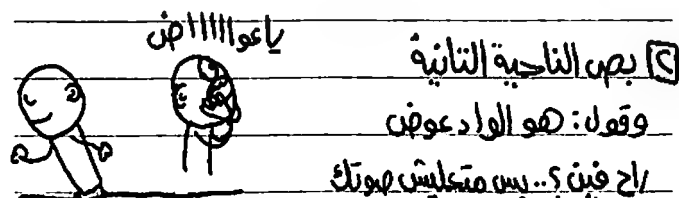 ياعوااااااض
٢ بص الناحية التانية
وقول: هو الواد عوض
راح فين؟.. بس متعليش صوتك